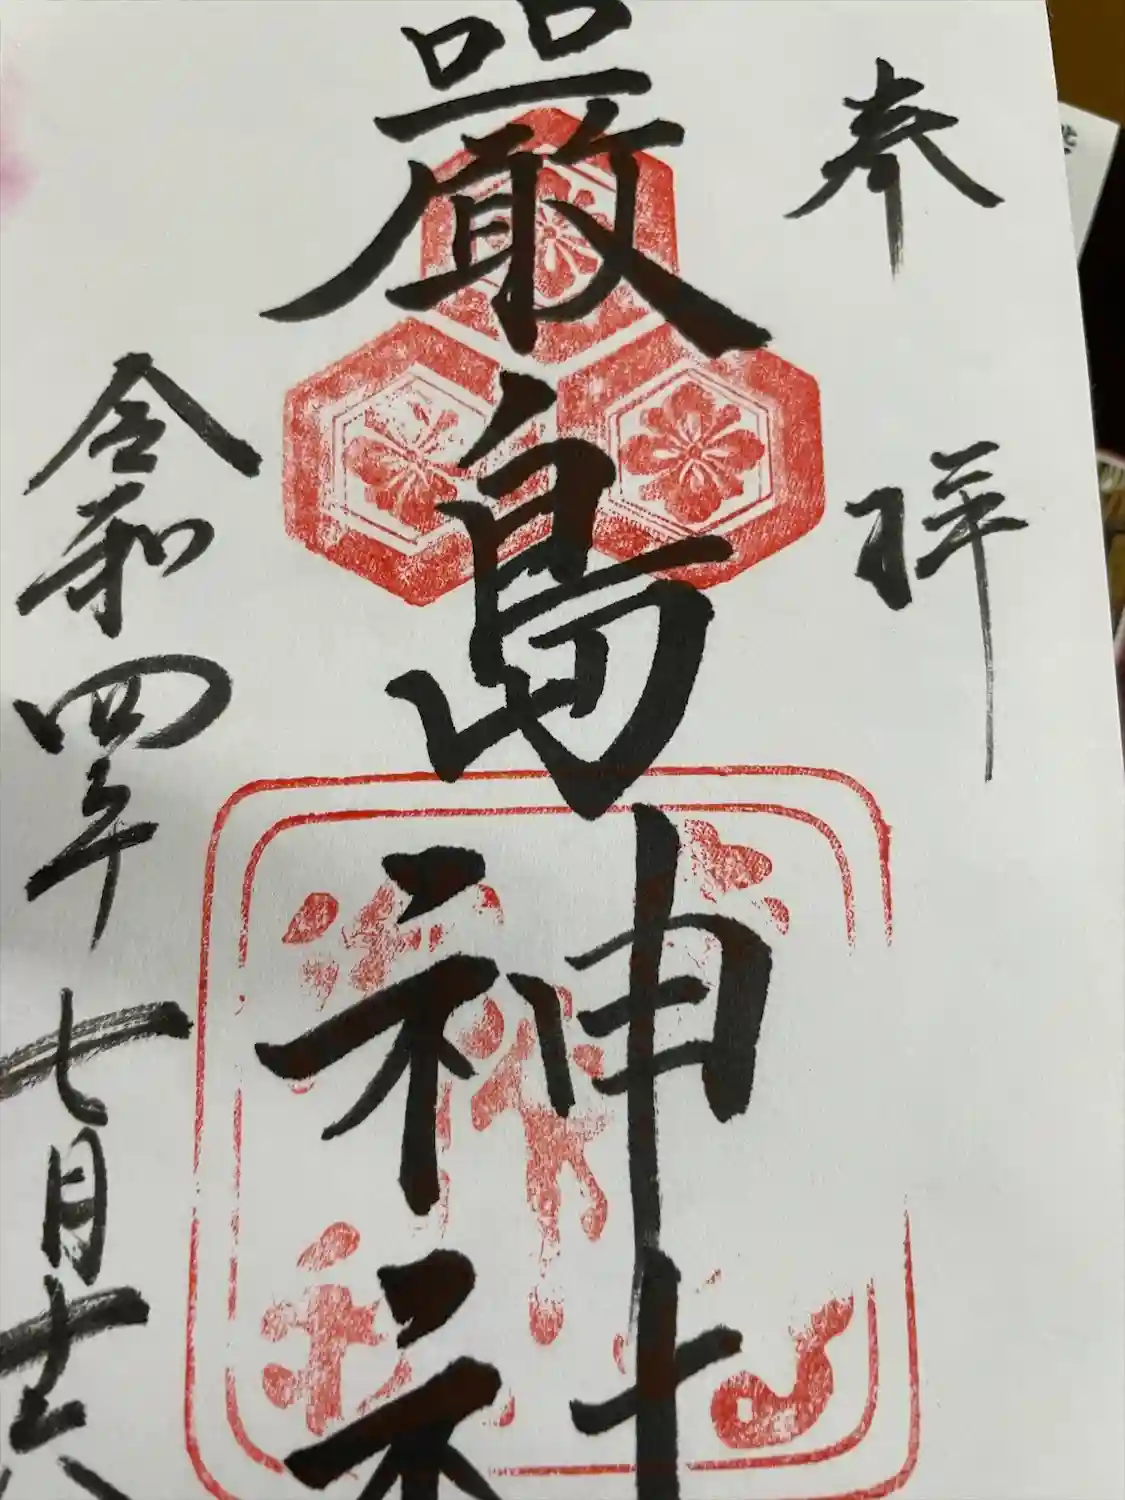 奉拝
嚴島神社
令和四年七月十六